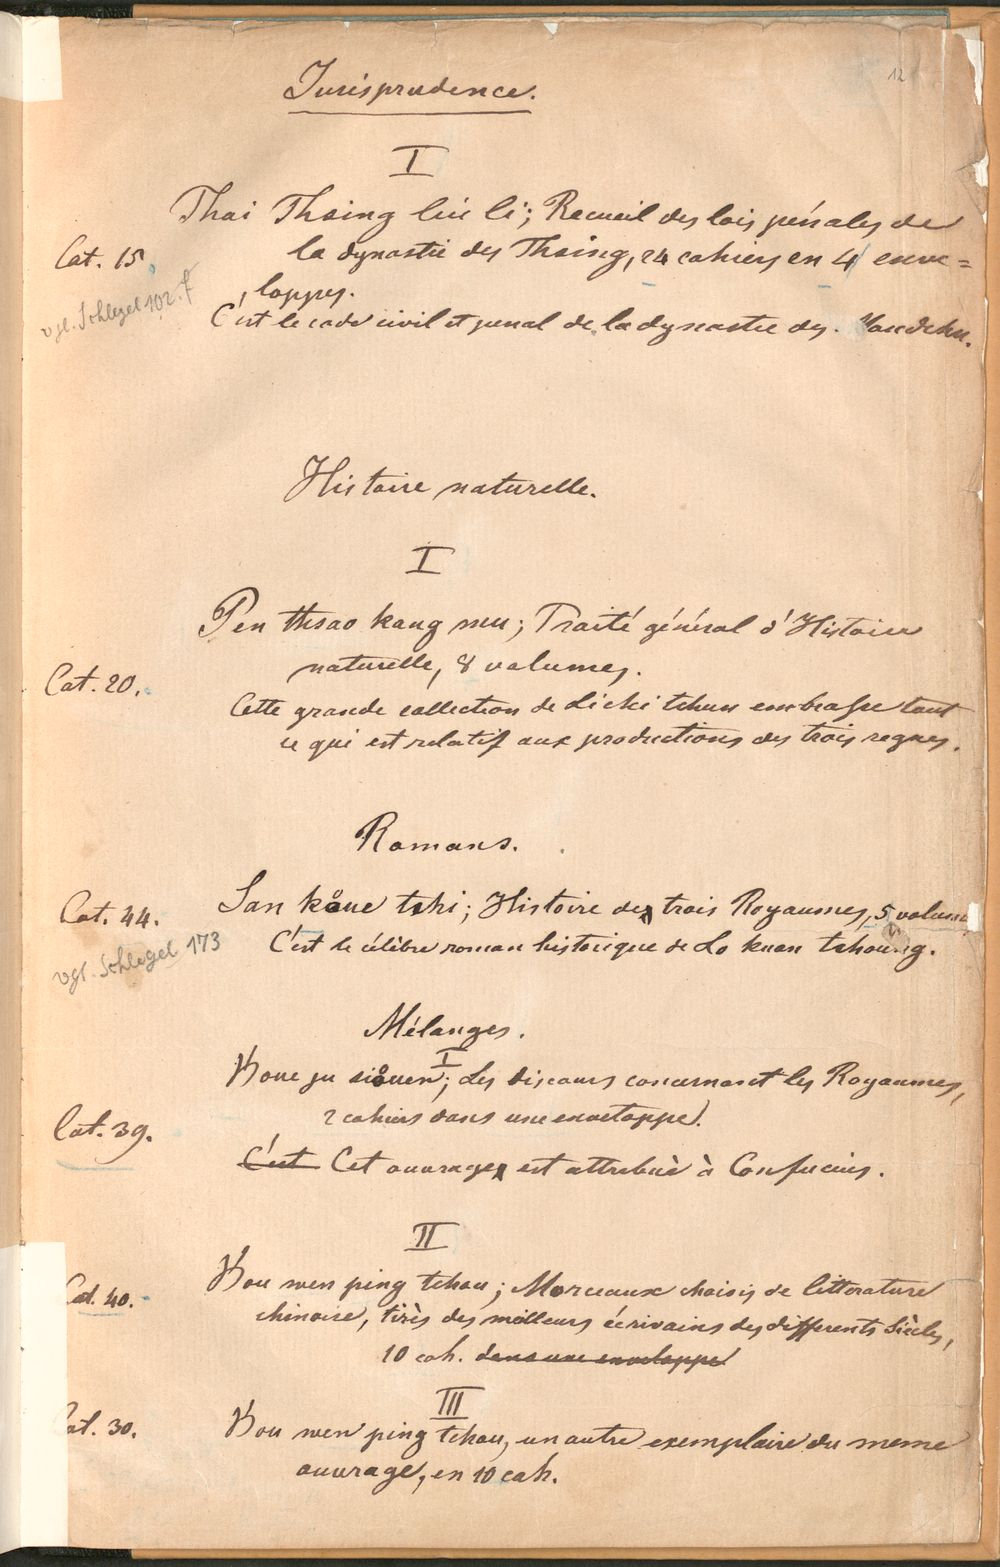 12
Jurisprudence.
I
Thai Thsing liu li; Recueil des lois pénales de
Cat. 15
la dynastie des Thsing, 24 cahiers en 4 enve=
loppes.
vgl. Schlegel 102. f
C'est le code civil et penal de la dynastie des
Histoire naturelle.
I
Pen thsao kang mu; Traité général d'Histoire
naturelle, 8 volumes.
Cat. 20.
Cette grande collection de Li chi tchun embrasse tout
ce qui est relatif aux productions des trois regnes.
Romans.
San koue tchi; Histoire des trois Royaumes, 5 volume
Cat. 44.
C'est le célèbre roman historique de Lo kuan tchoung.
vgl. Schlegel 173
Mélanges.
I
Koue yu siouen; Les discours concernant les Royaumes,
2 cahiers dans une enveloppe.
Cat. 39.
C'est Cet ouvrage est attribué à Confucius.
II
Kou wen ping tchou; Morceaux choisis de litterature
Cat. 40.
chinoise, tirés des meilleurs écrivains des differents siècles,
10 cah. dans une enveloppe
III
Cat. 30.
Kou wen ping tchou, un autre exemplaire du meme
ouvrage, en 10 cah.